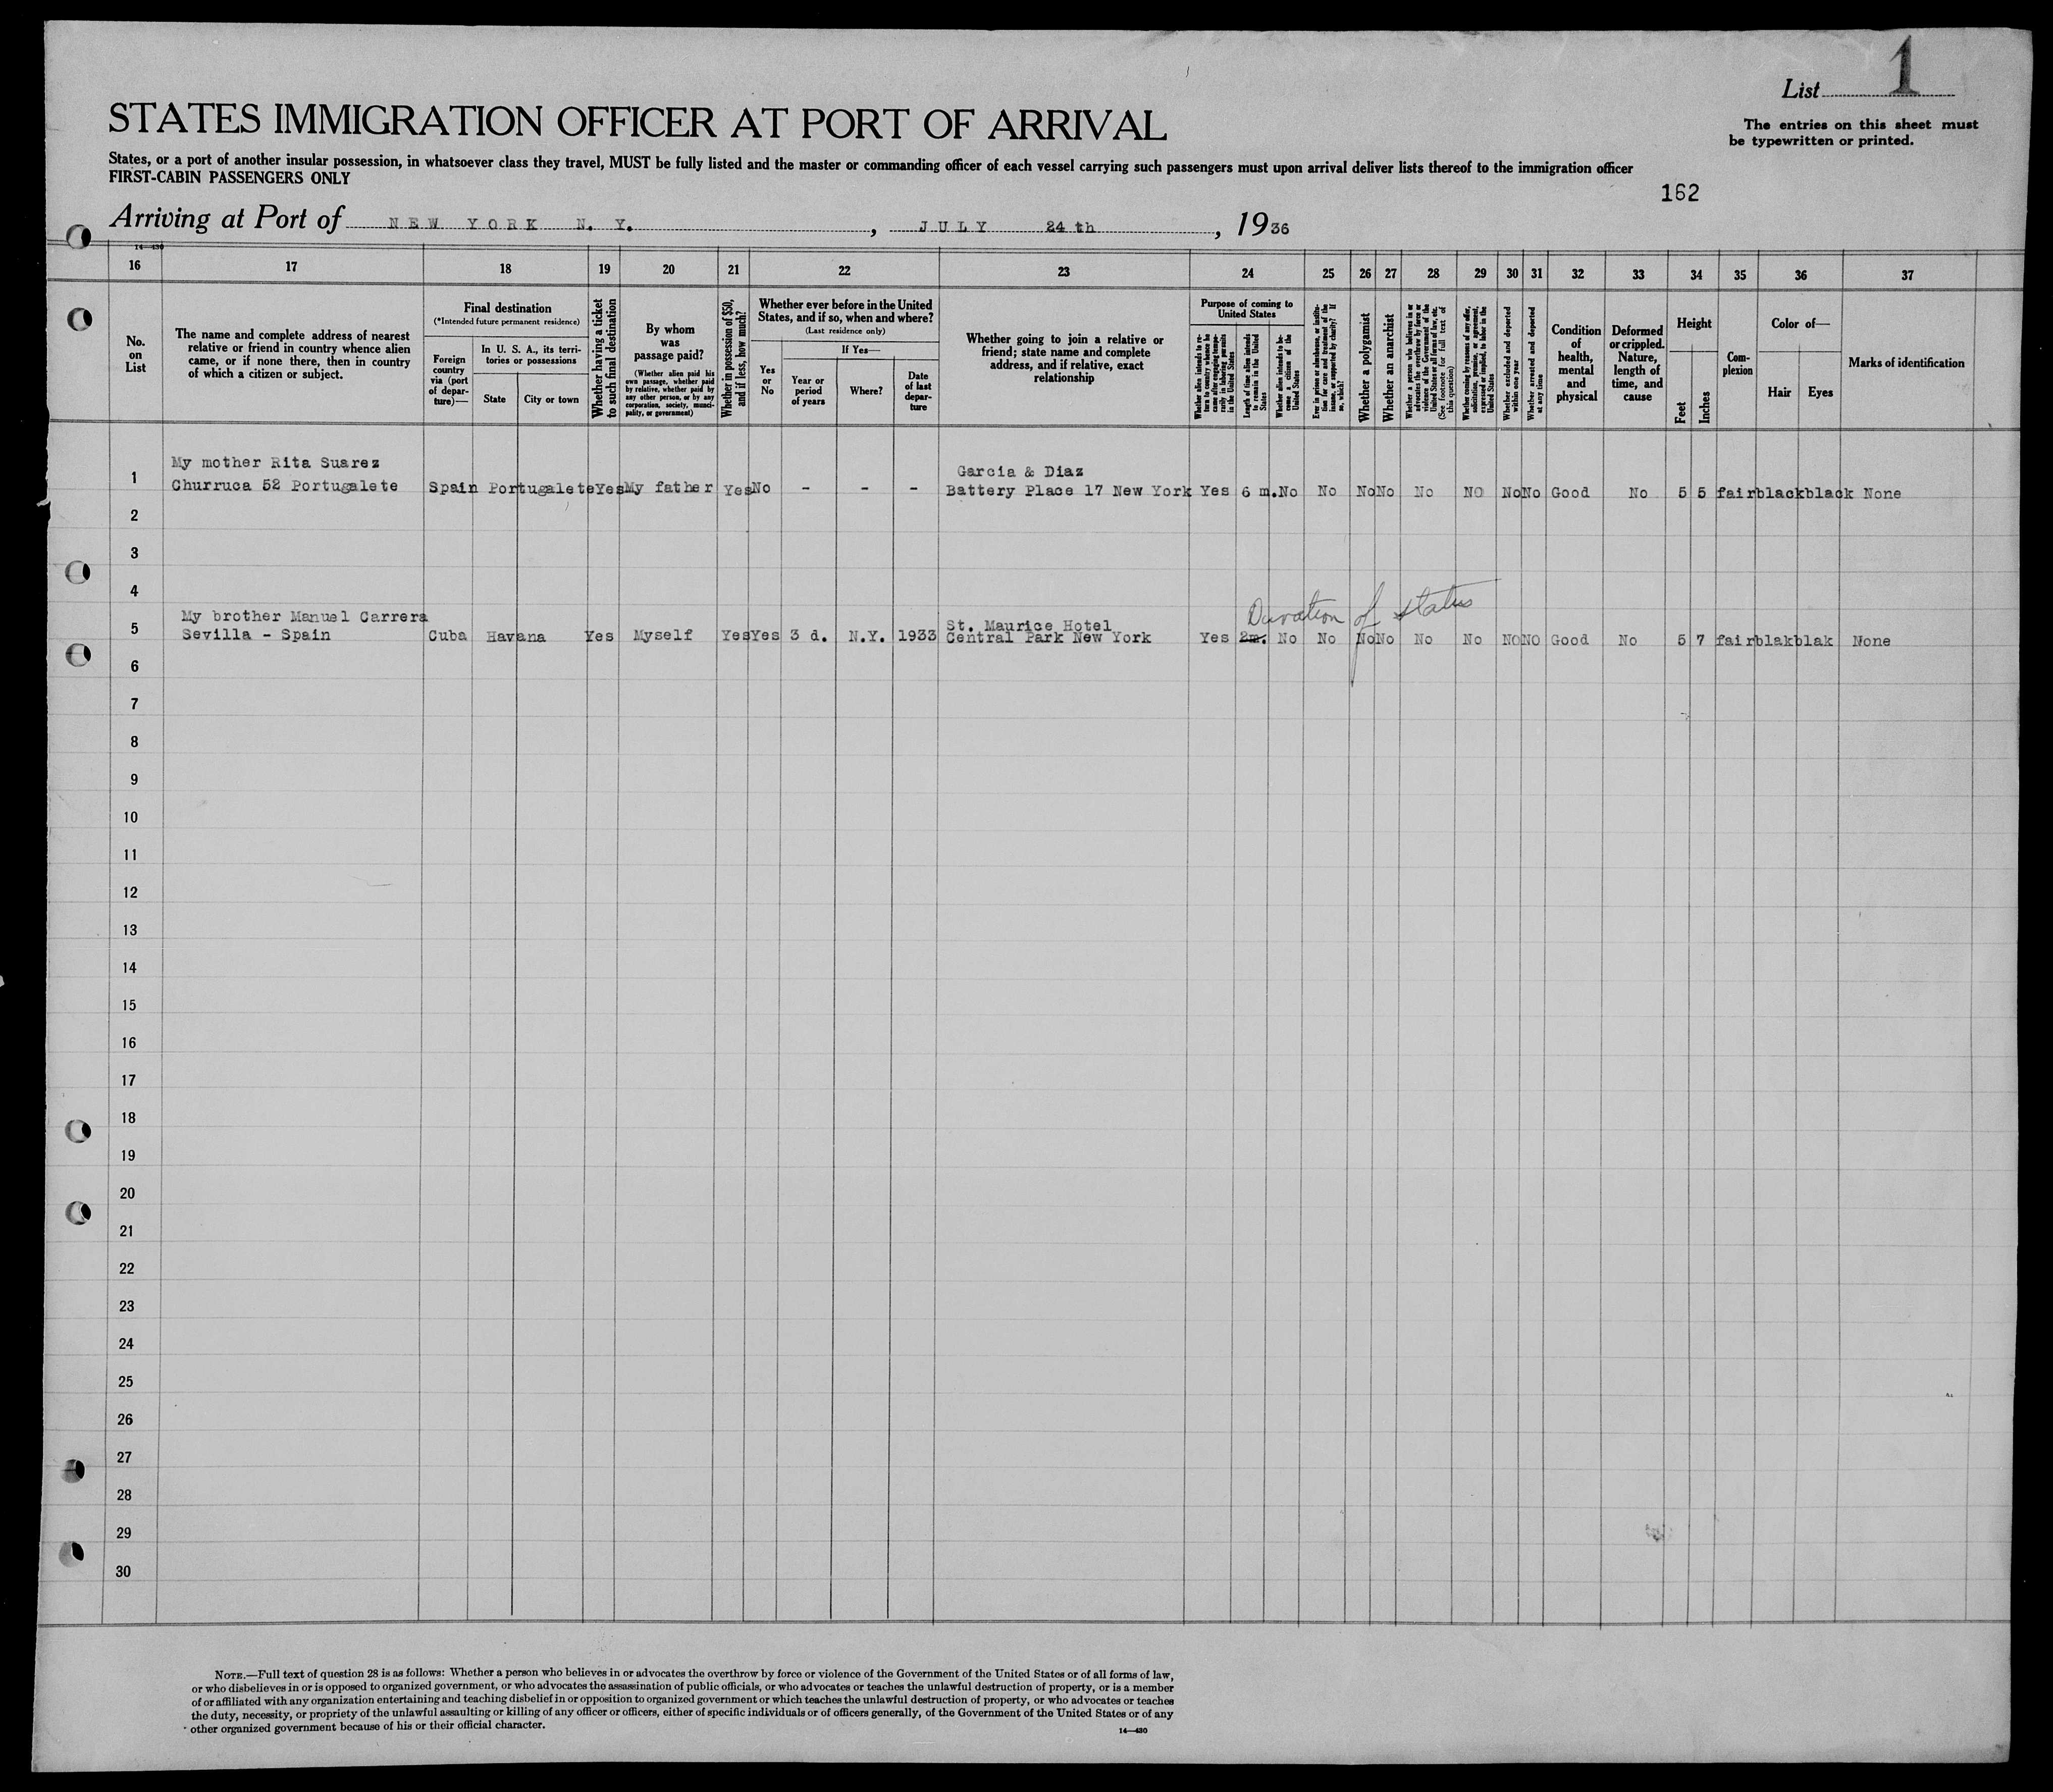 List 1
STATES IMMIGRATION OFFICER AT PORT OF ARRIVAL
The entries on this sheet must
be typewritten or printed.
States, or a port of another insular possession, in whatsoever class they travel, MUST be fully listed and the master or commanding officer of each vessel carrying such passengers must upon arrival deliver lists thereof to the immigration officer
FIRST-CABIN PASSENGERS ONLY
162
Arriving at Port of NEW YORK N. Y. , JULY 24th , 1936
14—430
16 17 18 19 20 21 22 23 24 25 26 27 28 29 30 31 32 33 34 35 36 37
No.
on
List
The name and complete address of nearest
relative or friend in country whence alien
came, or if none there, then in country
of which a citizen or subject.
Final destination
(*Intended future permanent residence)
Foreign
country
via (port
of depar-
ture)—
In U. S. A., its terri-
tories or possessions
State
City or town
Whether having a ticket
to such final destination
By whom
was
passage paid?
(Whether alien paid his
own passage, whether paid
by relative, whether paid by
any other person, or by any
corporation, society, munici-
pality, or government)
Whether in possession of $50,
and if less, how much?
Whether ever before in the United
States, and if so, when and where?
(Last residence only)
Yes
or
No
If Yes—
Year or
period
of years
Where?
Date
of last
depar-
ture
Whether going to join a relative or
friend; state name and complete
address, and if relative, exact
relationship
Purpose of coming to
United States
Whether alien intends to re-
turn to country whence he
came after engaging tempo-
rarily in laboring pursuits
in the United States
Length of time alien intends
to remain in the United
States
Whether alien intends to be-
come a citizen of the
United States
Ever in prison or almshouse, or institu-
tion for care and treatment of the
insane, or supported by charity? If
so, which?
Whether a polygamist
Whether an anarchist
Whether a person who believes in or
advocates the overthrow by force or
violence of the Government of the
United States or all forms of law, etc.
(See footnote for full text of
this question)
Whether coming by reasons of any offer,
solicitation, promise, or agreement,
expressed or implied, to labor in the
United States
Whether excluded and deported
within one year
Whether arrested and deported
at any time
Condition
of
health,
mental
and
physical
Deformed
or crippled.
Nature,
length of
time, and
cause
Height
Feet
Inches
Com-
plexion
Color of—
Hair
Eyes
Marks of identification
My mother Rita Suarez
Garcia & Diaz
1 Churruca 52 Portugalete Spain Portugalete Yes My father Yes No - - - Battery Place 17 New York Yes 6 m. No No No No No No No No Good No 5 5 fair black black None
2
3
4
Duration of status
My brother Manuel Carrera
St. Maurice Hotel
5 Sevilla - Spain Cuba Havana Yes Myself Yes Yes 3 d. N.Y. 1933 Central Park New York Yes 2m. No No No No No No NO NO Good No 5 7 fair blak blak None
6
7
8
9
10
11
12
13
14
15
16
17
18
19
20
21
22
23
24
25
26
27
28
29
30
NOTE.—Full text of question 28 is as follows: Whether a person who believes in or advocates the overthrow by force or violence of the Government of the United States or of all forms of law,
or who disbelieves in or is opposed to organized government, or who advocates the assassination of public officials, or who advocates or teaches the unlawful destruction of property, or is a member
of or affiliated with any organization entertaining and teaching disbelief in or opposition to organized government or which teaches the unlawful destruction of property, or who advocates or teaches
the duty, necessity, or propriety of the unlawful assaulting or killing of any officer or officers, either of specific individuals or of officers generally, of the Government of the United States or of any
other organized government because of his or their official character.
14—430